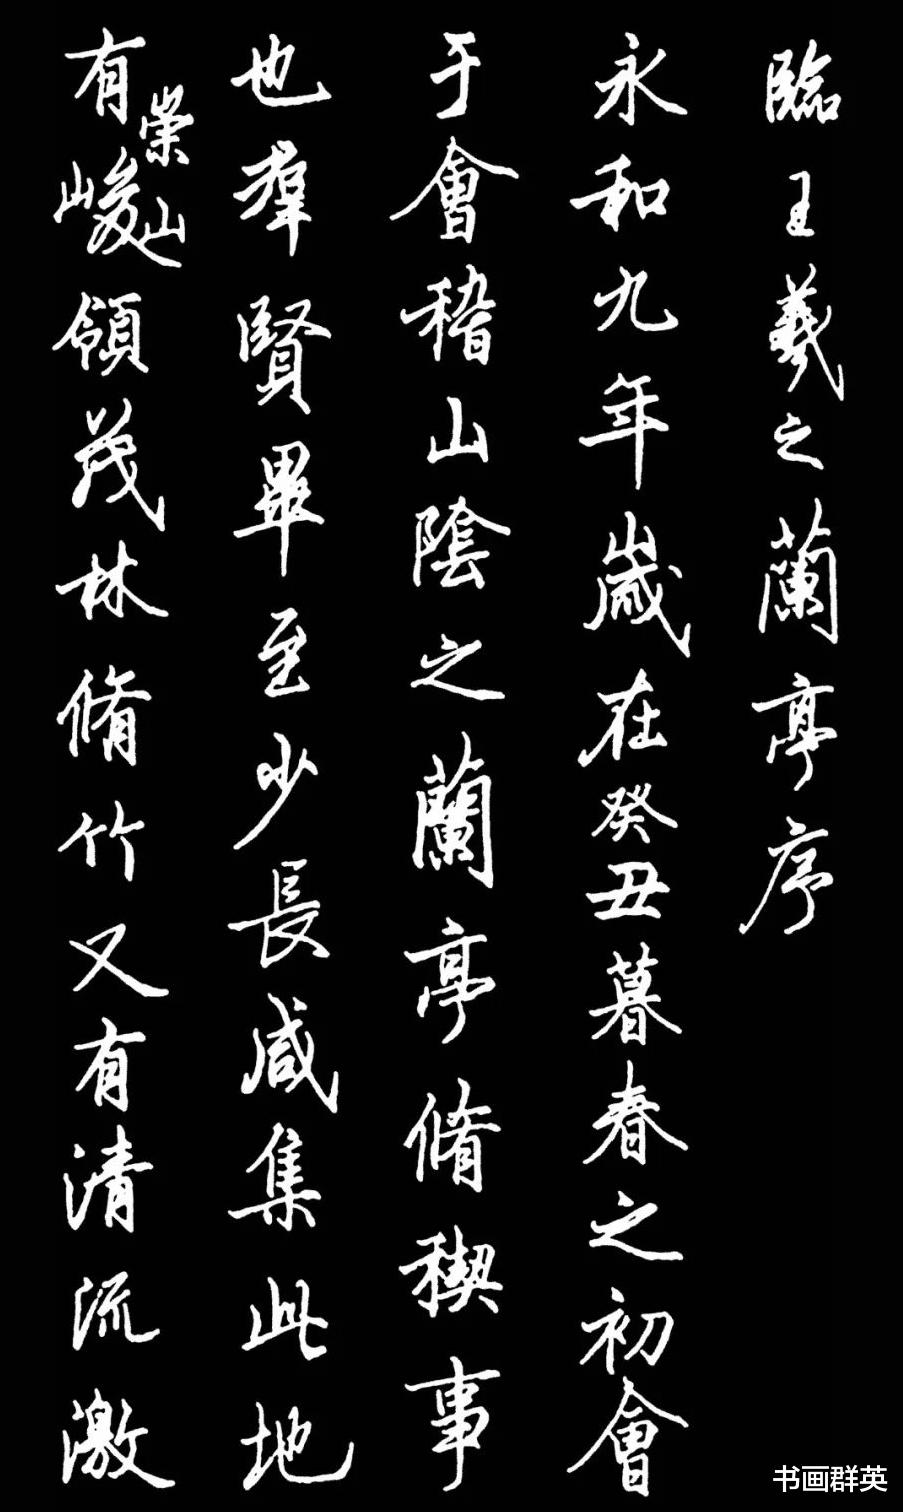 臨王羲之蘭亭序
永和九年歲在癸丑暮春之初會
于會稽山陰之蘭亭脩稧事
也羣賢畢至少長咸集此地
有崇山峻領茂林脩竹又有清流激
书画群英